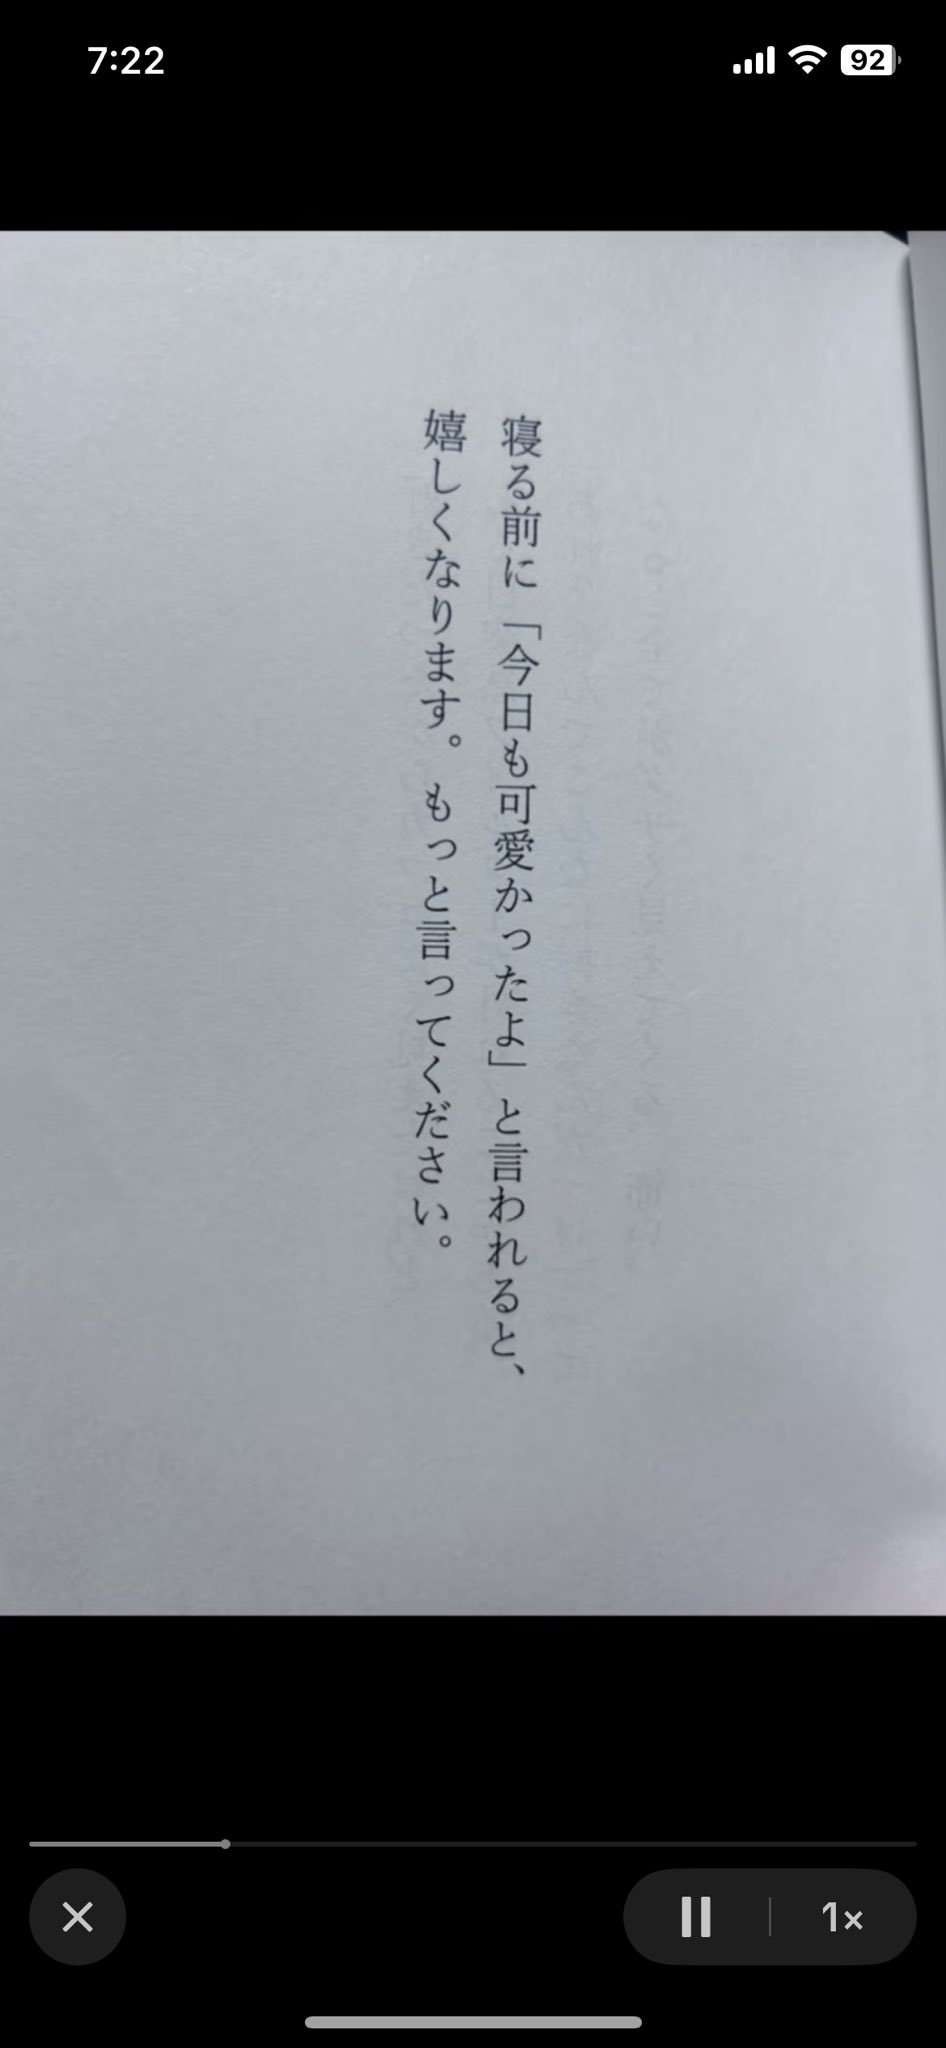 7:22
92
寝る前に「今日も可愛かったよ」と言われると、
嬉しくなります。もっと言ってください。
1×